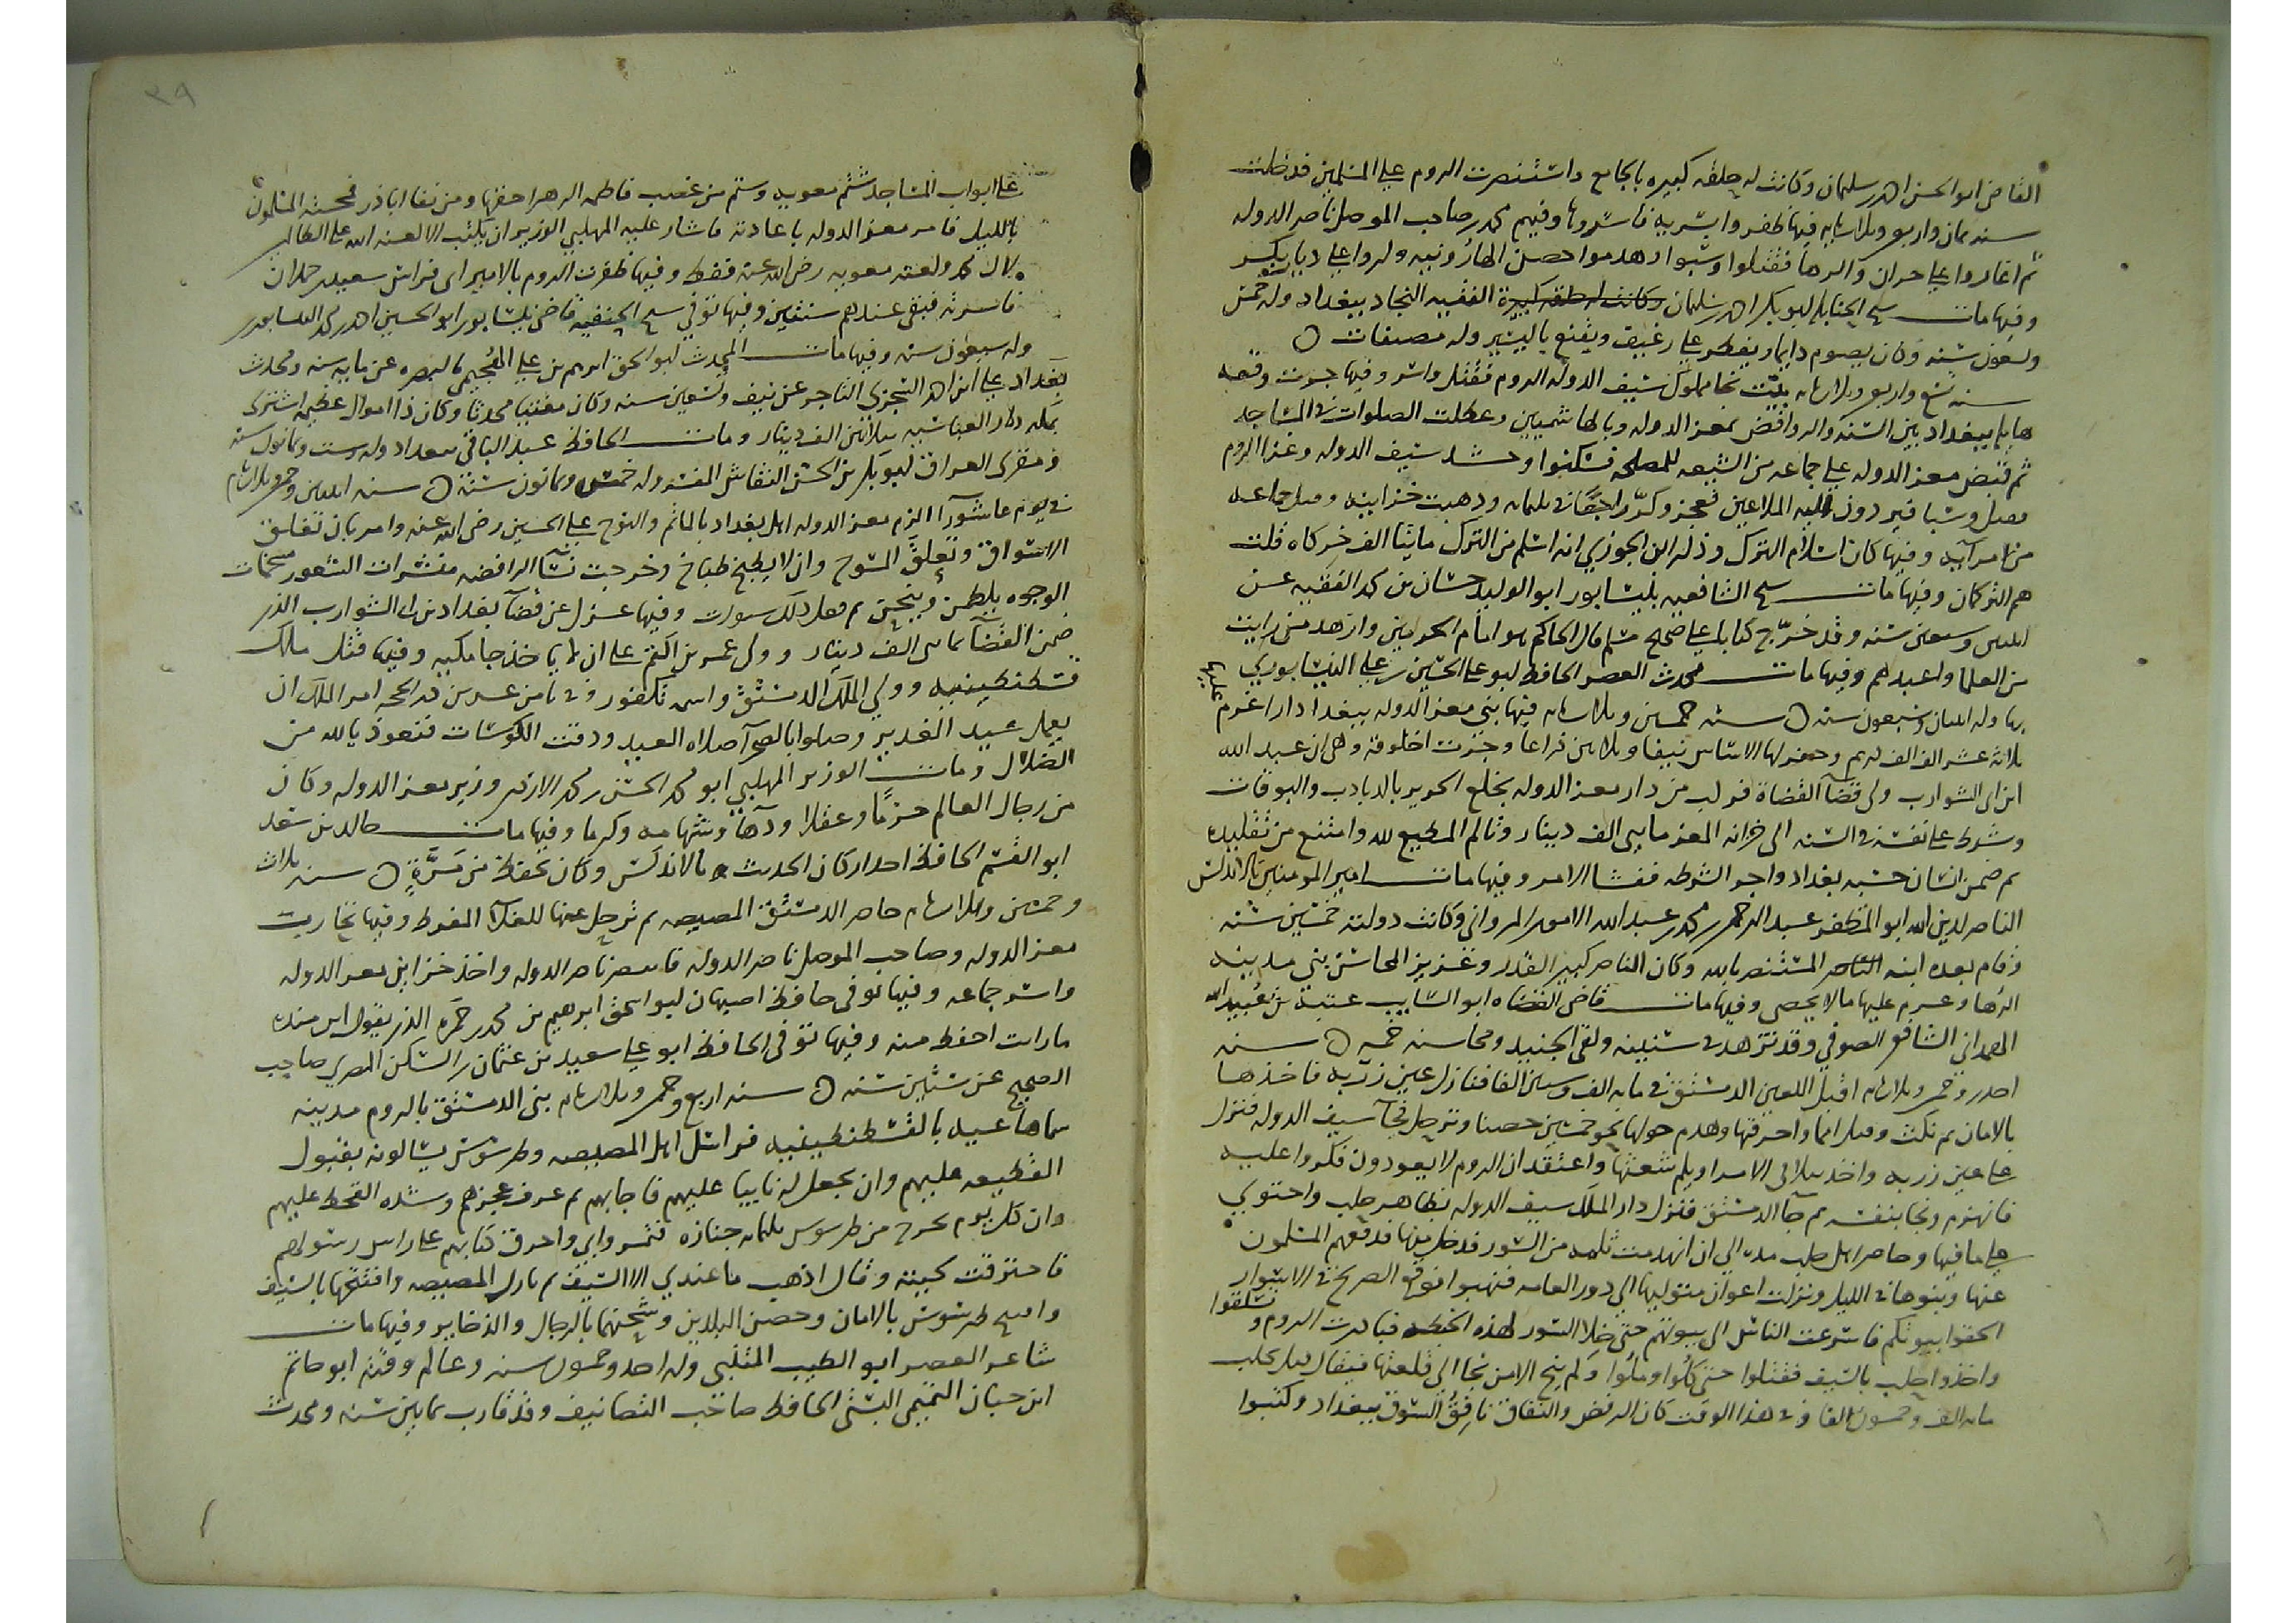 القاضي ابو الحسن احمد بن سليمان وكانت له حلقه كبيره بالجامع واستنصرت الروم على المسلمين قد خلت
سنه ثمان واربعين وثلاثمايه فيها ظفروا بسريه فاسروها وفيهم محمد بن صاحب الموصل ناصر الدوله
ثم اغاروا على حران والرها فقتلوا وسبوا وهدموا حصن الهارونيه وكروا على ديار بكر
وفيها مات شيخ الحنابله ابو بكر احمد بن سليمان وكانت له حلقه كبيرة الفقيه النجاد ببغداد وله خمس
وتسعون سنه وكان يصوم دايما ويفطر على رغيف ويقنع باليسير وله مصنفات
سنه تسع واربعين وثلاثمايه بيت نجا مملوك سيف الدوله الروم فقتل واسر وفيها جرت وقعه
هايله ببغداد بين السنه والروافض بمعز الدوله وبالهاشميين وعطلت الصلوات في المساجد
ثم قبض معز الدوله على جماعه من الشيعه للمصلحه فسكنوا وحشد سيف الدوله وغزا الروم
فقتل وسبا فيردون اليه الملاعين فعجز وكر راجعا في ثلثمايه وذهبت خزاينه وقتل جماعه
من امرآيه وفيها كان اسلام الترك وذكر ابن الجوزي انه اسلم من الترك مايتا الف خركاه قلت
هم التركمان وفيها مات شيخ الشافعيه بنيسابور ابو الوليد حسان بن محمد الفقيه عن
اثنتين وسبعين سنه وقد خرج كتابا على صحيح مسلم قال الحاكم هو امام الحديث وازهد من رايت
من العلما واعبدهم وفيها مات محدث العصر الحافظ ابو علي الحسين بن علي النيسابوري
بها وله اثنتان وسبعون سنه سنه خمسين وثلاثمايه فيها بنى معز الدوله ببغداد دارا غرم عليها
ثلاثه عشر الف الف درهم وحفر لها الاساس نيفا وثلاثين ذراعا وجرت اخلوقه وهي ان عبد الله
ابن ابي الشوارب ولى قضآ القضاة فركب من دار معز الدوله بخلع الحرير بالدبادب والبوقات
وشرط على نفسه في السنه الى خزانه المعز مايتي الف دينار وتالم المطيع لله وامتنع من تقليده
ثم ضمن انسان حسبه بغداد واخر الشرطه ففشا الامر وفيها مات امير المومنين بالاندلس
الناصر لدين الله ابو المظفر عبد الرحمن بن محمد بن عبد الله الاموي المرواني وكانت دولته خمسين سنه
وقام بعده ابنه الناصر المستنصر بالله وكان الناصر كبير القدر وغزير المحاسن بنى مدينه
الزهرا وغرم عليها ما لا يحصى وفيها مات قاضي القضاه ابو السايب عتبه بن عبيد الله
الهمداني الشافعي الصوفي وقد تزهد في شبيبته ولقى الجنيد ومحاسنه جمه سنه
احدى وخمسين وثلاثمايه اقبل اللعين الدمستق في مايه الف وستين الفا فنازل عين زربه فاخذها
بالامان ثم نكث وقتل اهلها واحرقها وهدم حولها نحو خمسين حصنا وترحل فجآ سيف الدوله فنزل
على عين زربه واخذ يتلافى الامر اويلم شعثها واعتقد ان الروم لا يعودون فكروا عليه
فانهزم ونجا بنفسه ثم جآ الدمستق فنزل دار الملك سيف الدوله بظاهر حلب واحتوى
على ما فيها وحاصر اهل حلب مده الى ان انهدمت ثلمه من السور فدخل منها فدفعهم المسلمون
عنها وبنوها في الليل ونزلت اعوان متوليها الى دور العامه فنهبوا فوقع الصريخ في الاسوار
الحقوا بيوتكم فاسرعت الناس الى بيوتهم حتى خلا السور لهذه الخبطه فبادرت الروم وتسلقوا
واخذوا حلب بالسيف فقتلوا حتى كلوا وملوا ولم ينج الا من نجا الى قلعتها فيقال قتل بحلب
مايه الف وخمسون الفا وفي هذا الوقت كان الرفض والنفاق نافق السوق ببغداد وكتبوا
٣٩
على ابواب المساجد شتم معويه وشتم من غصب فاطمه الزهرا حقها ومن نفا اباذر فمحته المسلمون
بالليل فامر معز الدوله باعادته فاشار عليه المهلبي الوزير ان يكتب الا لعنه الله على الظالمين
لال محمد ولعنه معويه رضي الله عنه فقط وفيها ظفرت الروم بالامير ابي فراس سعيد بن حمدان
فاسرته فبقى عندهم سنتين وفيها توفي شيخ الحنفيه قاضي نيسابور ابو الحسين احمد بن محمد النيسابوري
وله سبعون سنه وفيها مات المحدث ابو اسحق ابراهيم بن علي الهجيمي بالبصره عن مايه سنه ومحدث
بغداد دعلج بن احمد السجزي التاجر عن نيف وتسعين سنه وكان مفتيا محدثا وكان ذا اموال عظيمه اشترى
بمكه دار العباسيه بثلاثين الف دينار ومات الحافظ عبد الباقي ببغداد وله ست وثمانون سنه
ومقرى العراق ابو بكر بن الحسن النقاش المفسر وله خمس وثمانون سنه سنه اثنتين وخمسين وثلاثمايه
في يوم عاشورآ الزم معز الدوله اهل بغداد بالماتم والنوح على الحسين رضي الله عنه وامر بان تغلق
الاسواق وتعلق المسوح وان لا يطبخ طباخ وخرجت نسآ الرافضه منشرات الشعور مسخمات
الوجوه يلطمن وينحن ثم فعل ذلك سنوات وفيها عزل عن قضآ بغداد بن ابي الشوارب الذي
ضمن القضآ بمايتي الف دينار وولى عمر بن اكثم على ان لا ياخذ جامكيه وفيها قتل ملك
قسطنطينيه وولي الملك الدمستق واسمه نكفور وفي ثامن عشر من ذي الحجه امر الملك ان
يعمل عيد الغدير وصلوا بالصحرآ صلاه العيد ودقت الكوسات فنعوذ بالله من
الضلال ومات الوزير المهلبي ابو محمد الحسن بن محمد الازدي وزير معز الدوله وكان
من رجال العالم حزما وعقلا ودهآ وشهامه وكرما وفيها مات خالد بن سعد
ابو القسم الحافظ احد اركان الحديث بالاندلس وكان يحفظ من مرة سنه ثلاث
وخمسين وثلاثمايه حاصر الدمستق المصيصه ثم ترحل عنها للغلآ المفرط وفيها تحاربت
معز الدوله وصاحب الموصل ناصر الدوله فانتصر ناصر الدوله واخذ خزاين معز الدوله
واسر جماعه وفيها توفى حافظ اصبهان ابو اسحق ابراهيم بن محمد بن حمزه الذي يقول ابن منده
ما رايت احفظ منه وفيها توفى الحافظ ابو علي سعيد بن عثمان بن السكن المصري صاحب
الصحيح عن ستين سنه سنه اربع وخمسين وثلاثمايه بنى الدمستق بالروم مدينه
سماها عيد بالقسطنطينيه فراسل اهل المصيصه وطرسوس يسالونه بقبول
القطيعه عليهم وان يجعل له نايبا عليهم فاجابهم ثم عرف عجزهم وشده القحط عليهم
وان كل يوم يخرج من طرسوس ثلثمايه جنازه فتمر وابى واحرق كتابهم على راس رسولهم
فاحترقت لحيته وقال اذهب ما عندي الا السيف ثم نازل المصيصه وافتتحها بالسيف
وافتتح طرسوس بالامان وحصن البلدين وشحنهما بالرجال والذخاير وفيها مات
شاعر العصر ابو الطيب المتنبي وله احد وخمسون سنه وعالم وقته ابو حاتم
ابن حبان التميمي البستي الحافظ صاحب التصانيف وقد قارب ثمانين سنه ومحدث